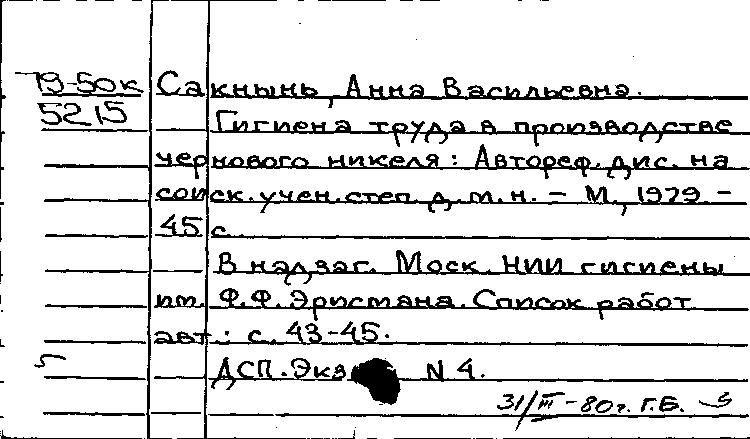 79-50к Сакнынь, Анна Васильевна.
5215 Гигиена труда в производстве
чернового никеля: Автореф. дис. на
соиск. учен. степ. д. м. н. – М., 1979. –
45 с.
В надзаг. Моск. НИИ гигиены
им. Ф.Ф. Эрисмана. Список работ
авт.: с. 43-45.
ДСП. Экз. N 4.
31/III-80г. Г.Б.